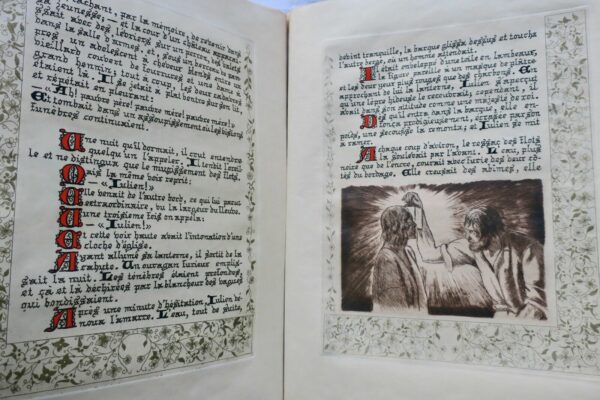 tachant, par la mémoire, de revenir dans
sa jeunesse; — et la cour d'un château apparais-
sait avec des lévriers sur un perron, des valets
dans la salle d'armes, et, sous un berceau de pam-
pres, un adolescent à cheveux blonds entre un
vieillard couvert de fourrures et une dame à
grand hennin; tout à coup, les deux cadavres
étaient là. Il se jetait à plat ventre sur son lit
et répétait en pleurant:
— « Ah! pauvre père! pauvre mère! pauvre mère! »
Et tombait dans un assoupissement où les visions
funèbres continuaient.
Une nuit qu'il dormait, il crut entendre
quelqu'un l'appeler. Il tendit l'oreil-
le et ne distingua que le mugissement des flots.
Mais la même voix reprit:
— « Julien! »
Elle venait de l'autre bord, ce qui lui parut
extraordinaire, vu la largeur du fleuve.
Une troisième fois on appela:
— « Julien! »
Et cette voix haute avait l'intonation d'une
cloche d'église.
Ayant allumé sa lanterne, il sortit de la
cahute. Un ouragan furieux emplis-
sait la nuit. Les ténèbres étaient profondes,
et çà et là déchirées par la blancheur des vagues
qui bondissaient.
Après une minute d'hésitation, Julien dé-
noua l'amarre. L'eau, tout de suite,
devint tranquille, la barque glissa dessus et toucha
l'autre berge, où un homme attendait.
Il était enveloppé d'une toile en lambeaux,
la figure pareille à un masque de plâtre
et les deux yeux plus rouges que des charbons. En
approchant de lui la lanterne, Julien s'aperçut
qu'une lèpre hideuse le recouvrait; cependant, il
avait dans son attitude comme une majesté de roi.
Dès qu'il entra dans la barque, elle en-
fonça prodigieusement, écrasée par son
poids; une secousse la remonta; et Julien se mit
à ramer.
A chaque coup d'aviron, le ressac des flots
la soulevait par l'avant. L'eau, plus
noire que de l'encre, courait avec furie des deux cô-
tés du bordage. Elle creusait des abîmes, elle